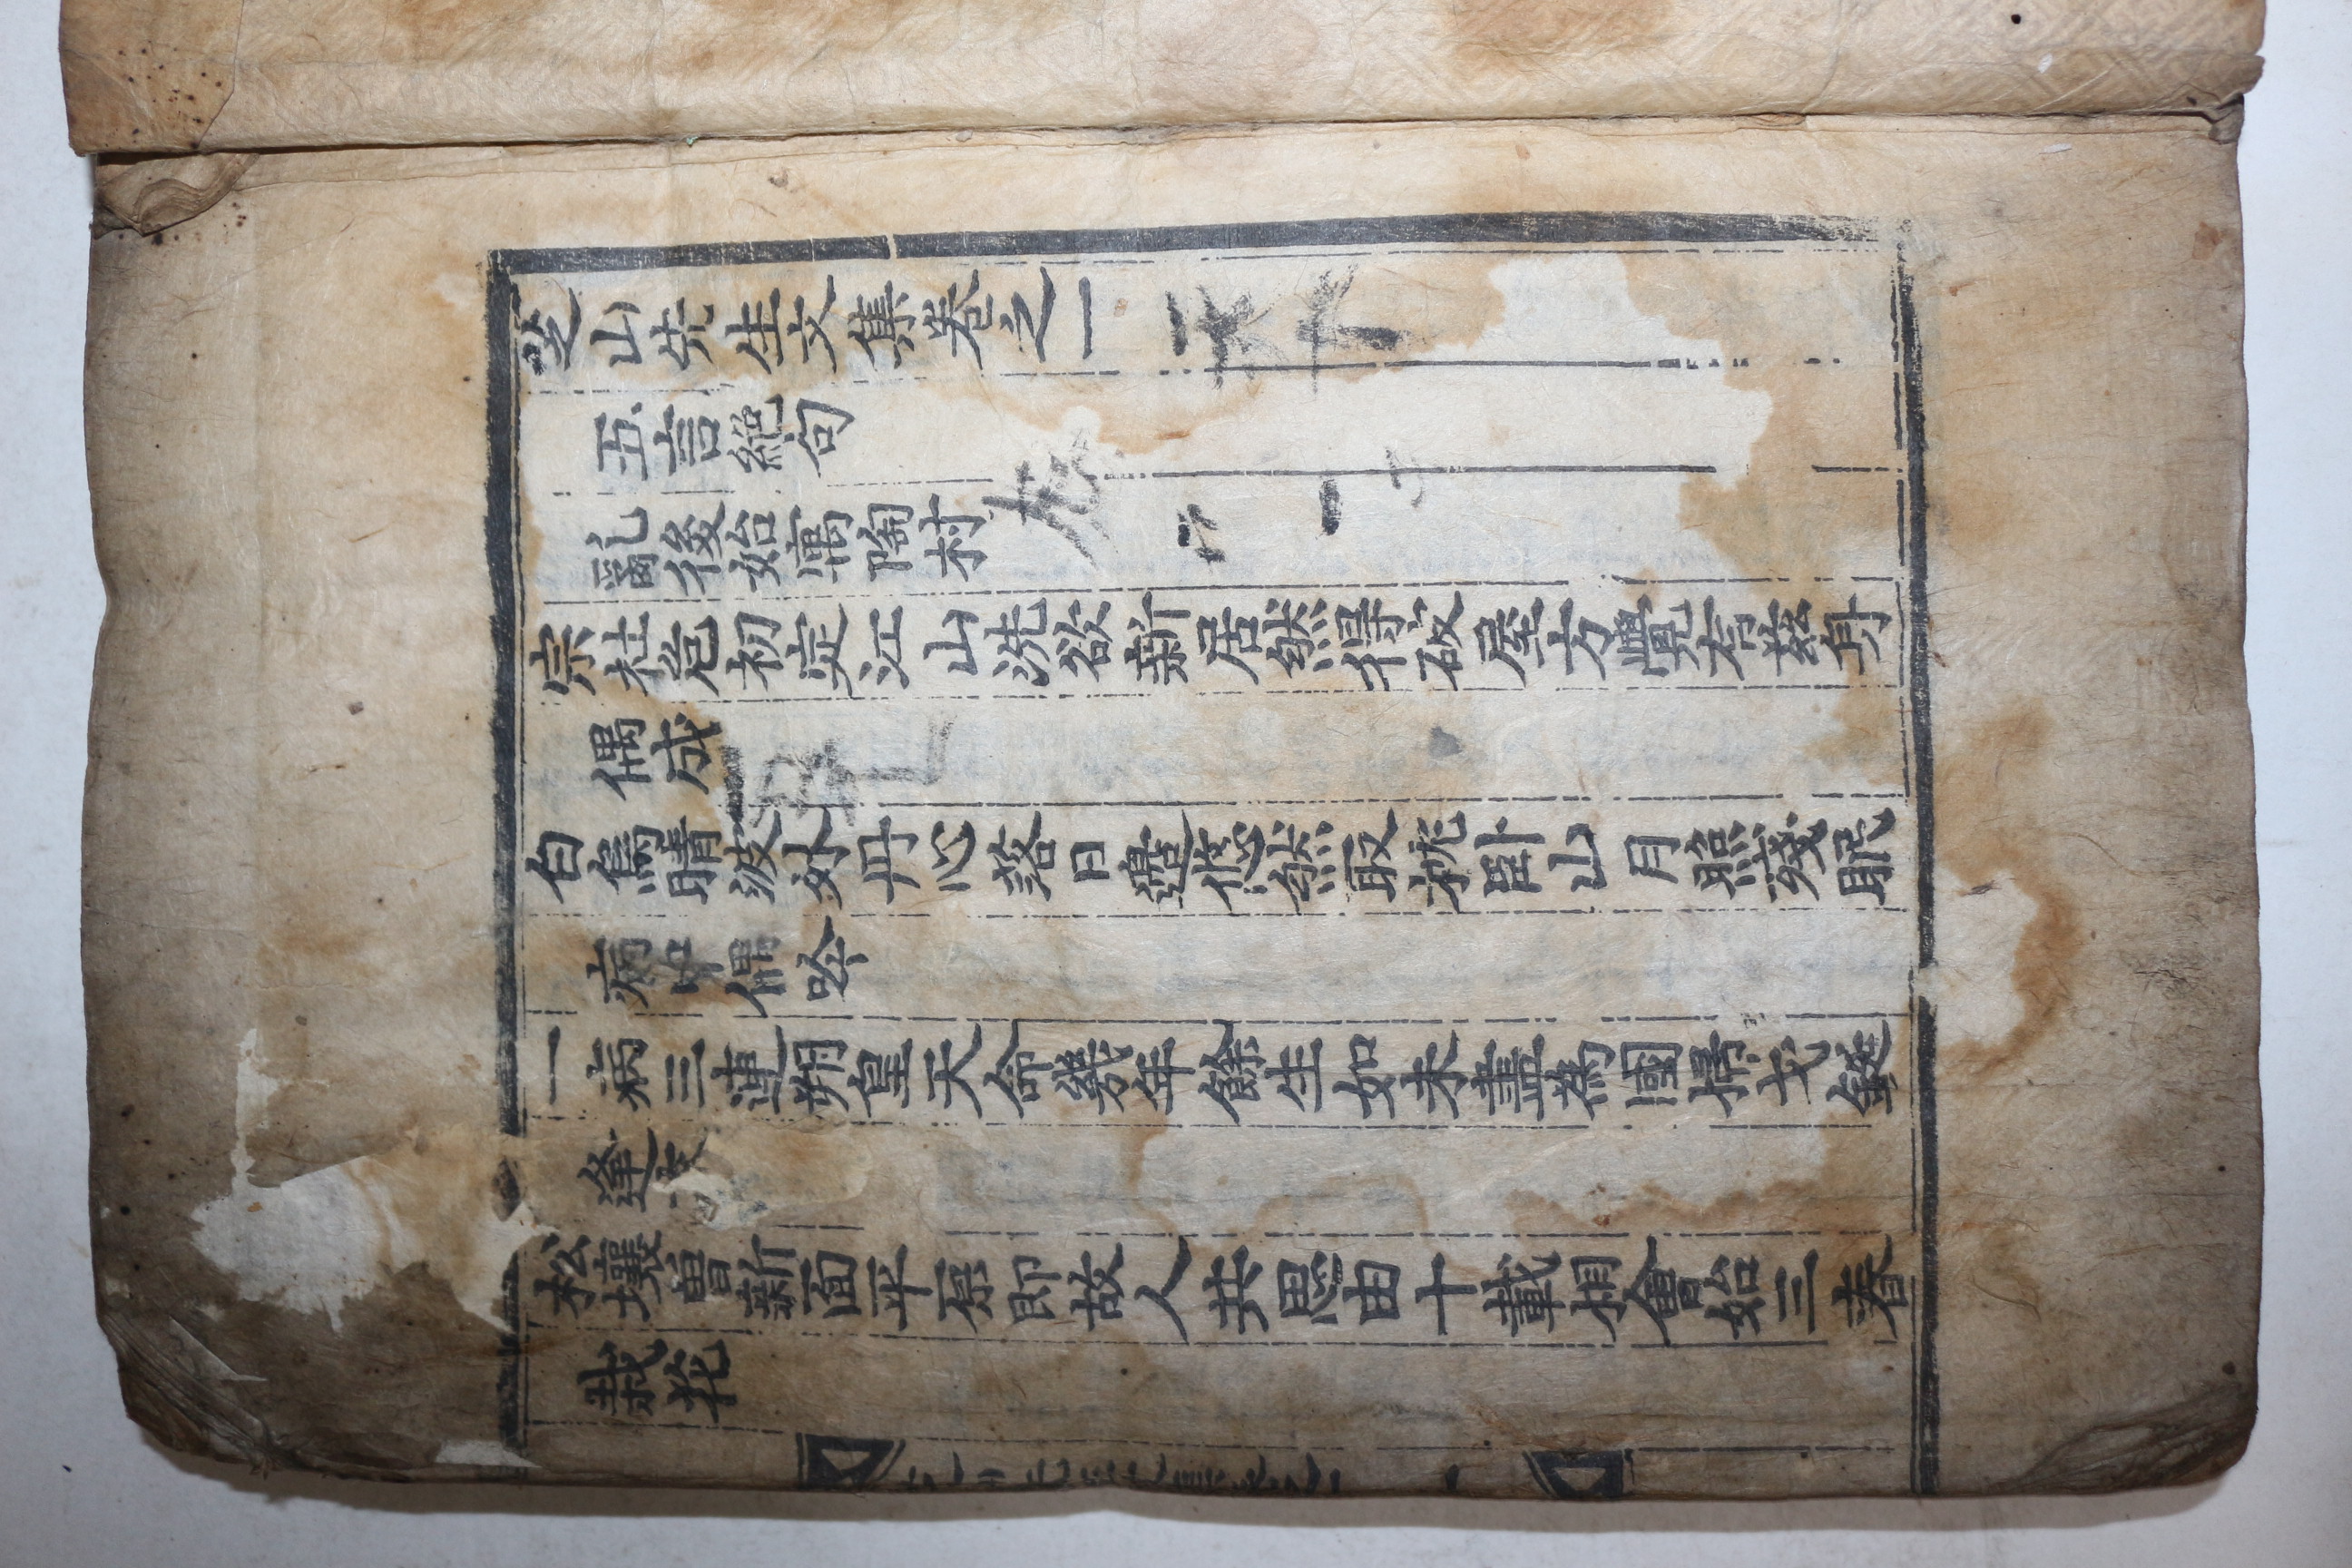 芝山先生文集卷之一
五言絶句
亂後始寓陶村
宗社危初定江山洗欲新居然得破屋方覺有茲身
偶成
白鳥晴波外丹心落日邊悠然取枕卧山月照殘眠
病中偶吟
一病三連朔皇天命幾年餘生如未盡為國掃戈鋋
逢
松壤曽新面平原即故人共思由十載相會始三春
栽花